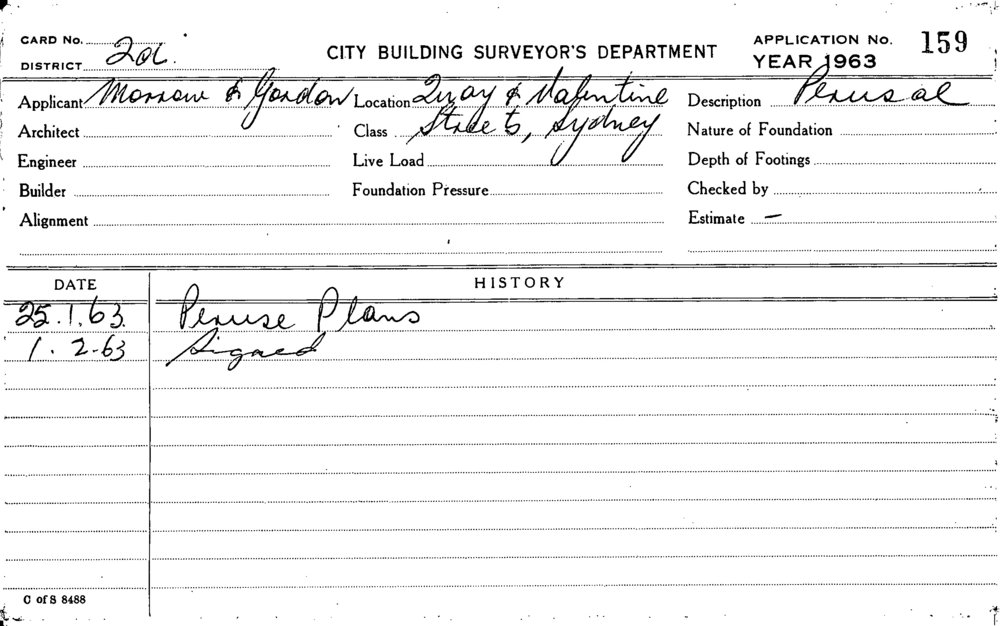 CARD No. CITY BUILDING SURVEYOR'S DEPARTMENT APPLICATION No. 159
DISTRICT 2a YEAR 1963
Applicant Morrow & Gordon Location Quay & Valentine Description Perusal
Architect Class Streets, Sydney Nature of Foundation
Engineer Live Load Depth of Footings
Builder Foundation Pressure Checked by
Alignment Estimate —
DATE HISTORY
25.1.63. Peruse Plans
1.2.63 Signed
C of S 8488